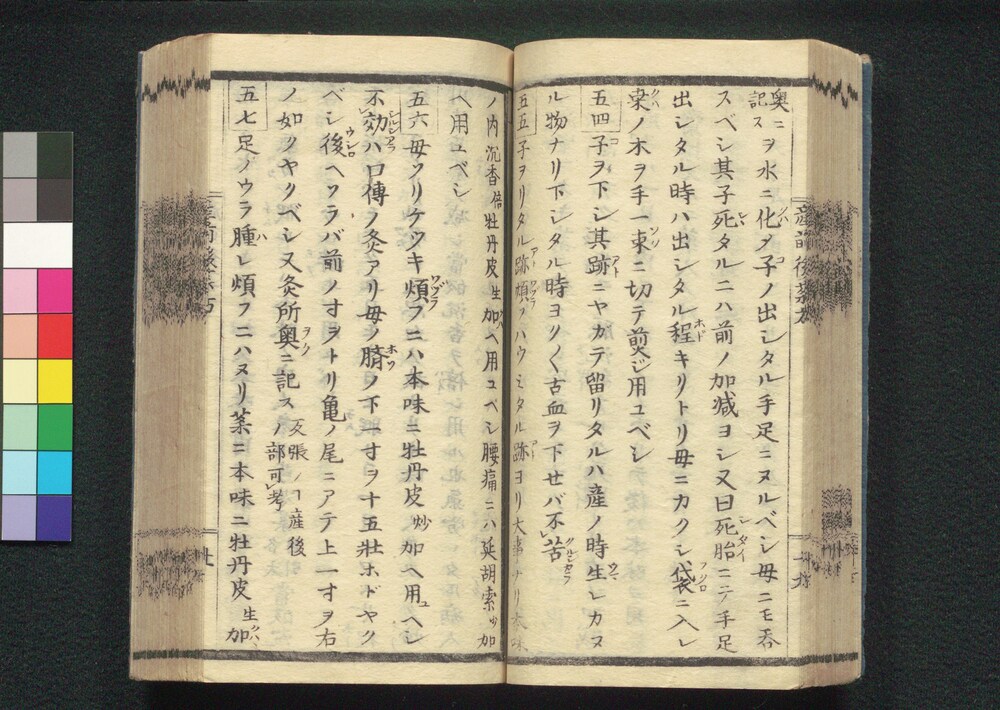 奥ニ記スヲ水ニ化メ子ノ出シタル手足ニヌルベシ母ニモ呑
スベシ其子死タルニハ前ノ加減ヨシ又曰死胎ニテ手足
出シタル時ハ出シタル程キリトリ母ニカクシ袋ニ入レ
ノ木ヲ手一束ニ切テ煎ジ用ユベシ
五四 子ヲ下シ其跡ニヤガテ留リタルハ産ノ時生レカヌ
ル物ナリ下シタル時ヨリ〳〵古血ヲ下セバ不苦
五五 子ヲリタル跡煩フハウミタル跡ヨリ大事ナリ本味
ノ内沉香倍牡丹皮生加ヘ用ユベシ腰痛ニハ延胡索少加
ヘ用ユベシ
五六 母ツリケツキ煩フニハ本味ニ牡丹皮炒加ヘ用ユベシ
不効ハ口傳ノ灸アリ母ノ臍ノ下一寸ヲ十五壮ホドヤク
ベシ後ヘソラバ前ノ寸ヲトリ亀ノ尾ニアテ上一寸ヲ右
ノ如クヤクベシ又灸所奥ニ記ス 反張ノコ産後ノ部可考
五七 足ノウラ腫レ煩フニハヌリ薬ニ本味ニ牡丹皮生加